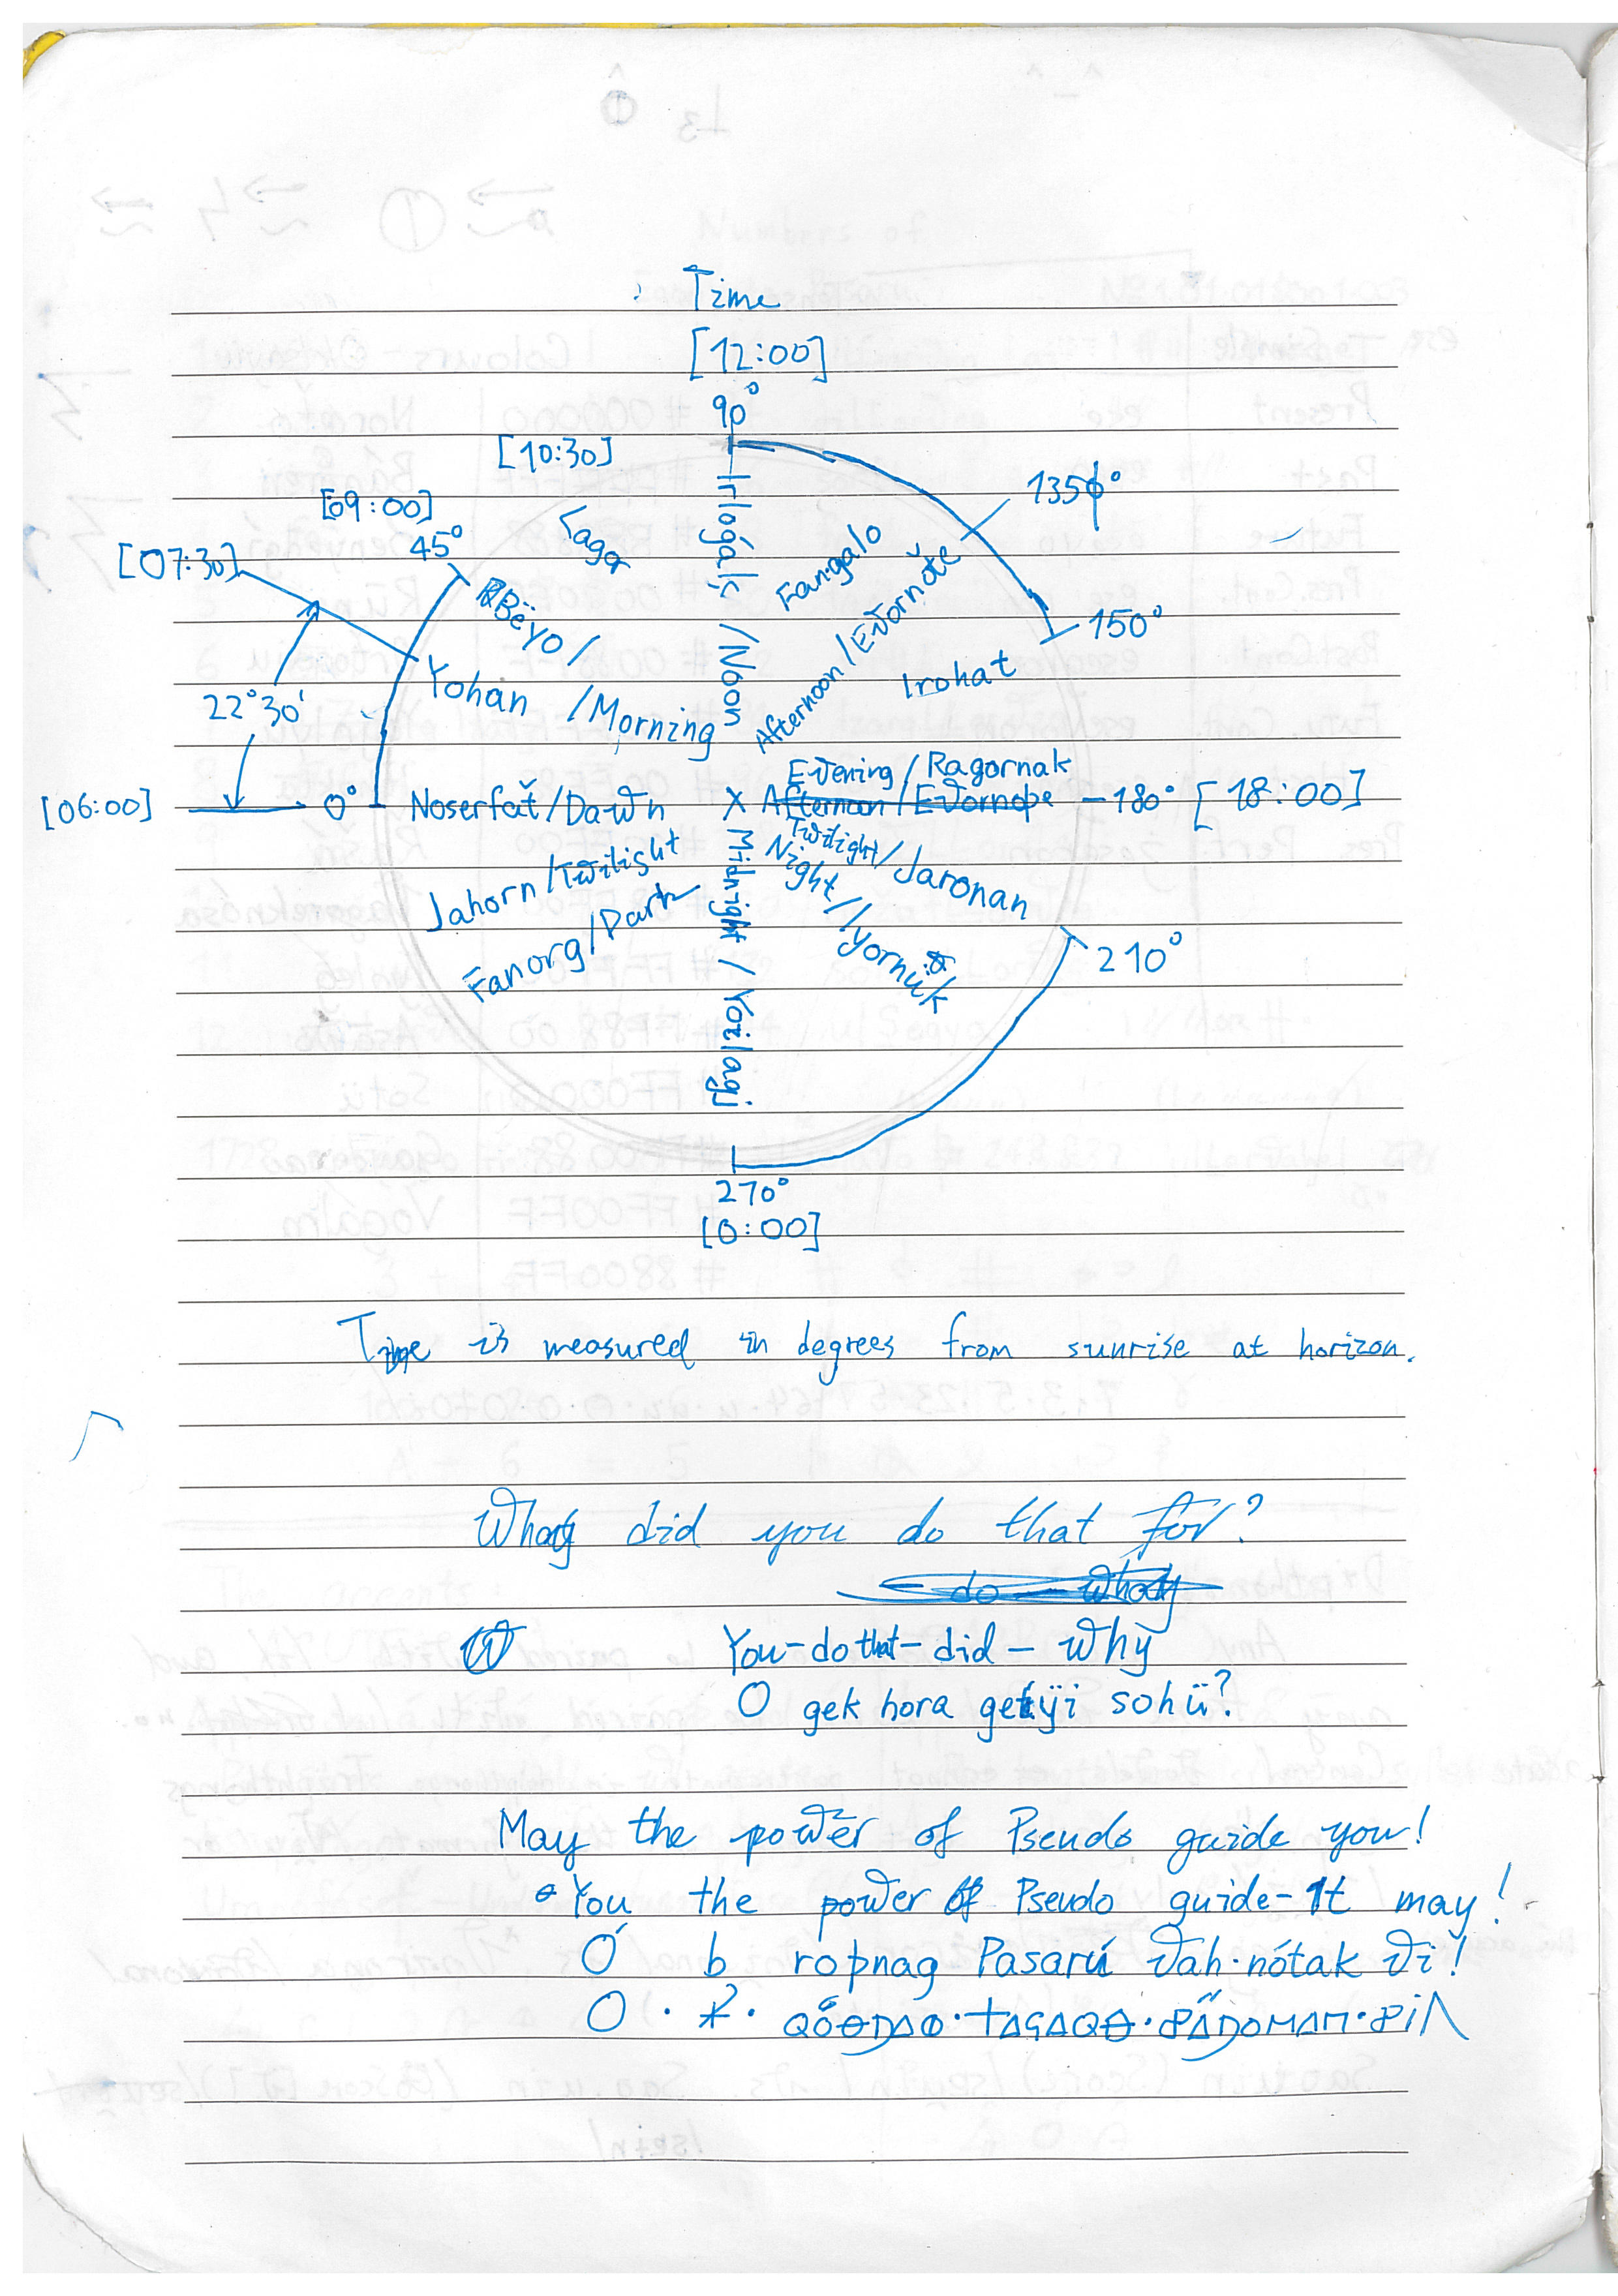 Time
[12:00]
90°
[10:30]
[09:00]
45°
[07:30]
22°30'
[06:00]
0°
135°
150°
Faga
Bëyo /
Yohan /Morning
Noserfať/Dawn
Jahorn/Twilight
Fanorg/Dark
/Noon
Fangalo
Afternoon/
Irohat
Evening/Ragornak
X Afternoon/
-180° [18:00]
Twilight/Jaronan
Night/Iyornük
Midnight / Yozlagi
210°
270°
[0:00]
Time is measured in degrees from sunrise at horizon.
Why did you do that for?
do why
W You-do that-did-why
O gek hora gekÿi sohü?
May the power of Pseudo guide you!
You the power of Pseudo guide-It may!
Ó b roþnag Pasarú vah·nótak vi!